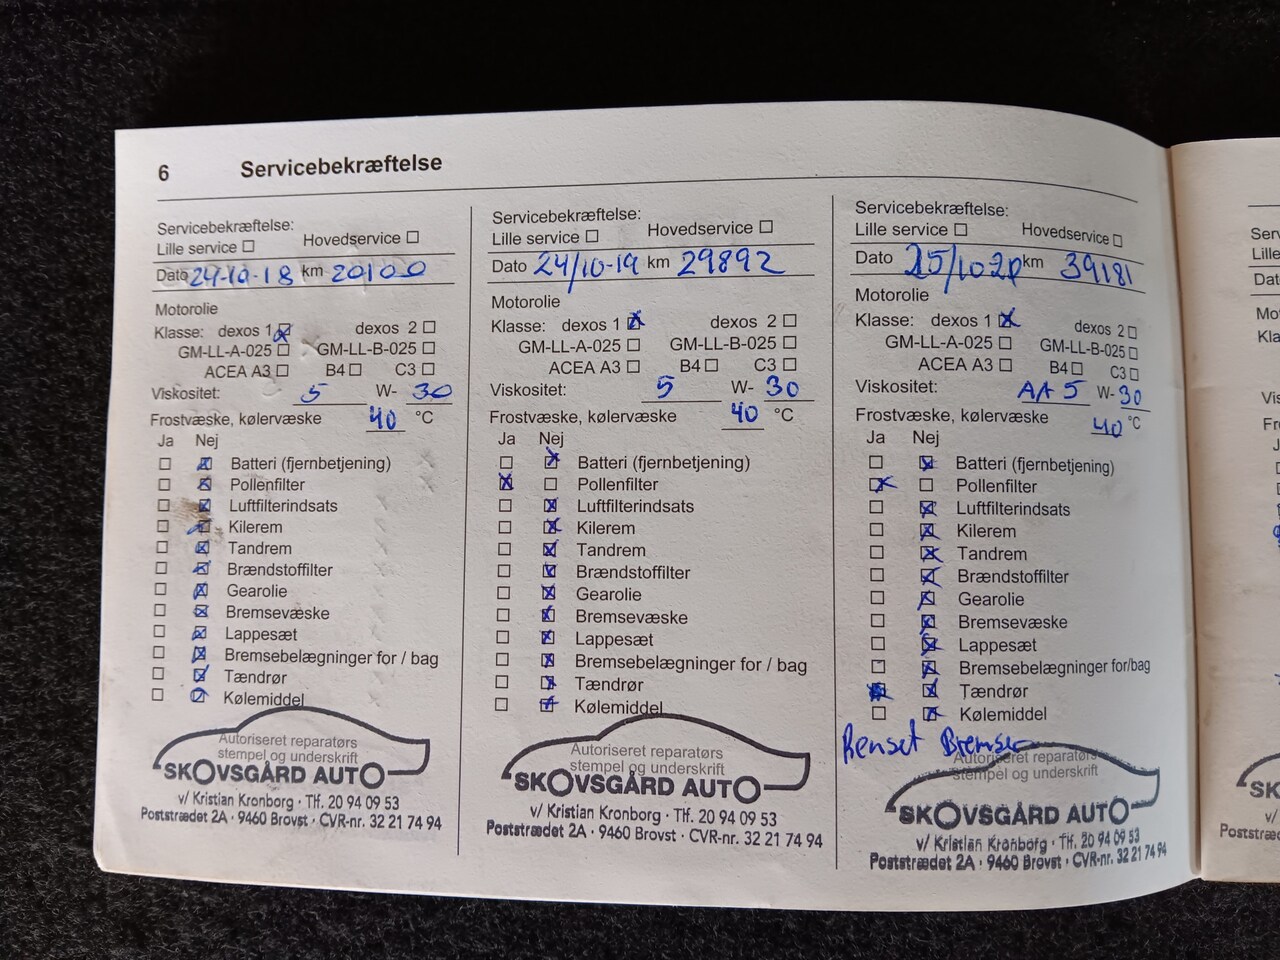 6 Servicebekræftelse
Servicebekræftelse:
Lille service ☐ Hovedservice ☐
Dato 24-10-18 km 20100
Motorolie
Klasse: dexos 1 ☒ dexos 2 ☐
GM-LL-A-025 ☐ GM-LL-B-025 ☐
ACEA A3 ☐ B4 ☐ C3 ☐
Viskositet: 5 W- 30
Frostvæske, kølervæske 40 °C
Ja Nej
☐ ☒ Batteri (fjernbetjening)
☐ ☒ Pollenfilter
☐ ☒ Luftfilterindsats
☐ ☒ Kilerem
☐ ☒ Tandrem
☐ ☒ Brændstoffilter
☐ ☒ Gearolie
☐ ☒ Bremsevæske
☐ ☒ Lappesæt
☐ ☒ Bremsebelægninger for / bag
☐ ☒ Tændrør
☐ ☒ Kølemiddel
Autoriseret reparatørs
stempel og underskrift
SKOVSGÅRD AUTO
v/ Kristian Kronborg · Tlf. 20 94 09 53
Poststrædet 2A · 9460 Brovst · CVR-nr. 32 21 74 94
Servicebekræftelse:
Lille service ☐ Hovedservice ☐
Dato 24/10-19 km 29892
Motorolie
Klasse: dexos 1 ☒ dexos 2 ☐
GM-LL-A-025 ☐ GM-LL-B-025 ☐
ACEA A3 ☐ B4 ☐ C3 ☐
Viskositet: 5 W- 30
Frostvæske, kølervæske 40 °C
Ja Nej
☐ ☒ Batteri (fjernbetjening)
☒ ☐ Pollenfilter
☐ ☒ Luftfilterindsats
☐ ☒ Kilerem
☐ ☒ Tandrem
☐ ☒ Brændstoffilter
☐ ☒ Gearolie
☐ ☒ Bremsevæske
☐ ☒ Lappesæt
☐ ☒ Bremsebelægninger for / bag
☐ ☒ Tændrør
☐ ☒ Kølemiddel
Autoriseret reparatørs
stempel og underskrift
SKOVSGÅRD AUTO
v/ Kristian Kronborg · Tlf. 20 94 09 53
Poststrædet 2A · 9460 Brovst · CVR-nr. 32 21 74 94
Servicebekræftelse:
Lille service ☐ Hovedservice ☐
Dato km 39181
Motorolie
Klasse: dexos 1 ☒ dexos 2 ☐
GM-LL-A-025 ☐ GM-LL-B-025 ☐
ACEA A3 ☐ B4 ☐ C3 ☐
Viskositet: 5 W- 30
Frostvæske, kølervæske 40 °C
Ja Nej
☐ ☒ Batteri (fjernbetjening)
☒ ☐ Pollenfilter
☐ ☒ Luftfilterindsats
☐ ☒ Kilerem
☐ ☒ Tandrem
☐ ☒ Brændstoffilter
☐ ☒ Gearolie
☐ ☒ Bremsevæske
☐ ☒ Lappesæt
☐ ☒ Bremsebelægninger for/bag
☒ ☒ Tændrør
☐ ☒ Kølemiddel
Renset Bremser
Autoriseret reparatørs
stempel og underskrift
SKOVSGÅRD AUTO
v/ Kristian Kronborg · Tlf. 20 94 09 53
Poststrædet 2A · 9460 Brovst · CVR-nr. 32 21 74 94